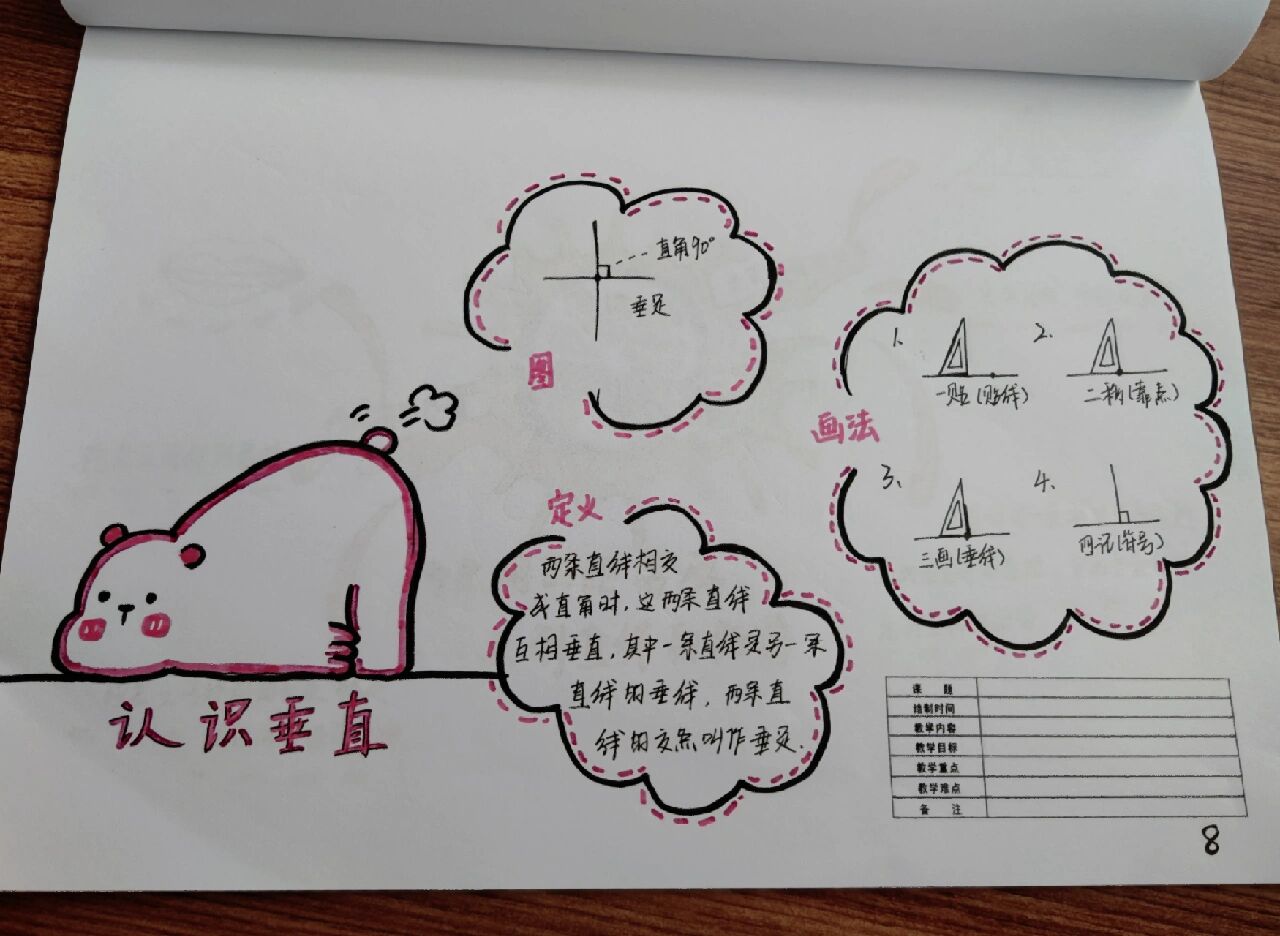 直角90°
垂足
图
画法
1、
2、
一贴(贴线)
二靠(靠点)
3、
4、
三画(垂线)
四记(符号)
定义
两条直线相交
成直角时,这两条直线
互相垂直,其中一条直线是另一条
直线的垂线,两条直
线的交点叫作垂足.
认识垂直
课 题
绘制时间
教学内容
教学目标
教学重点
教学难点
备 注
8